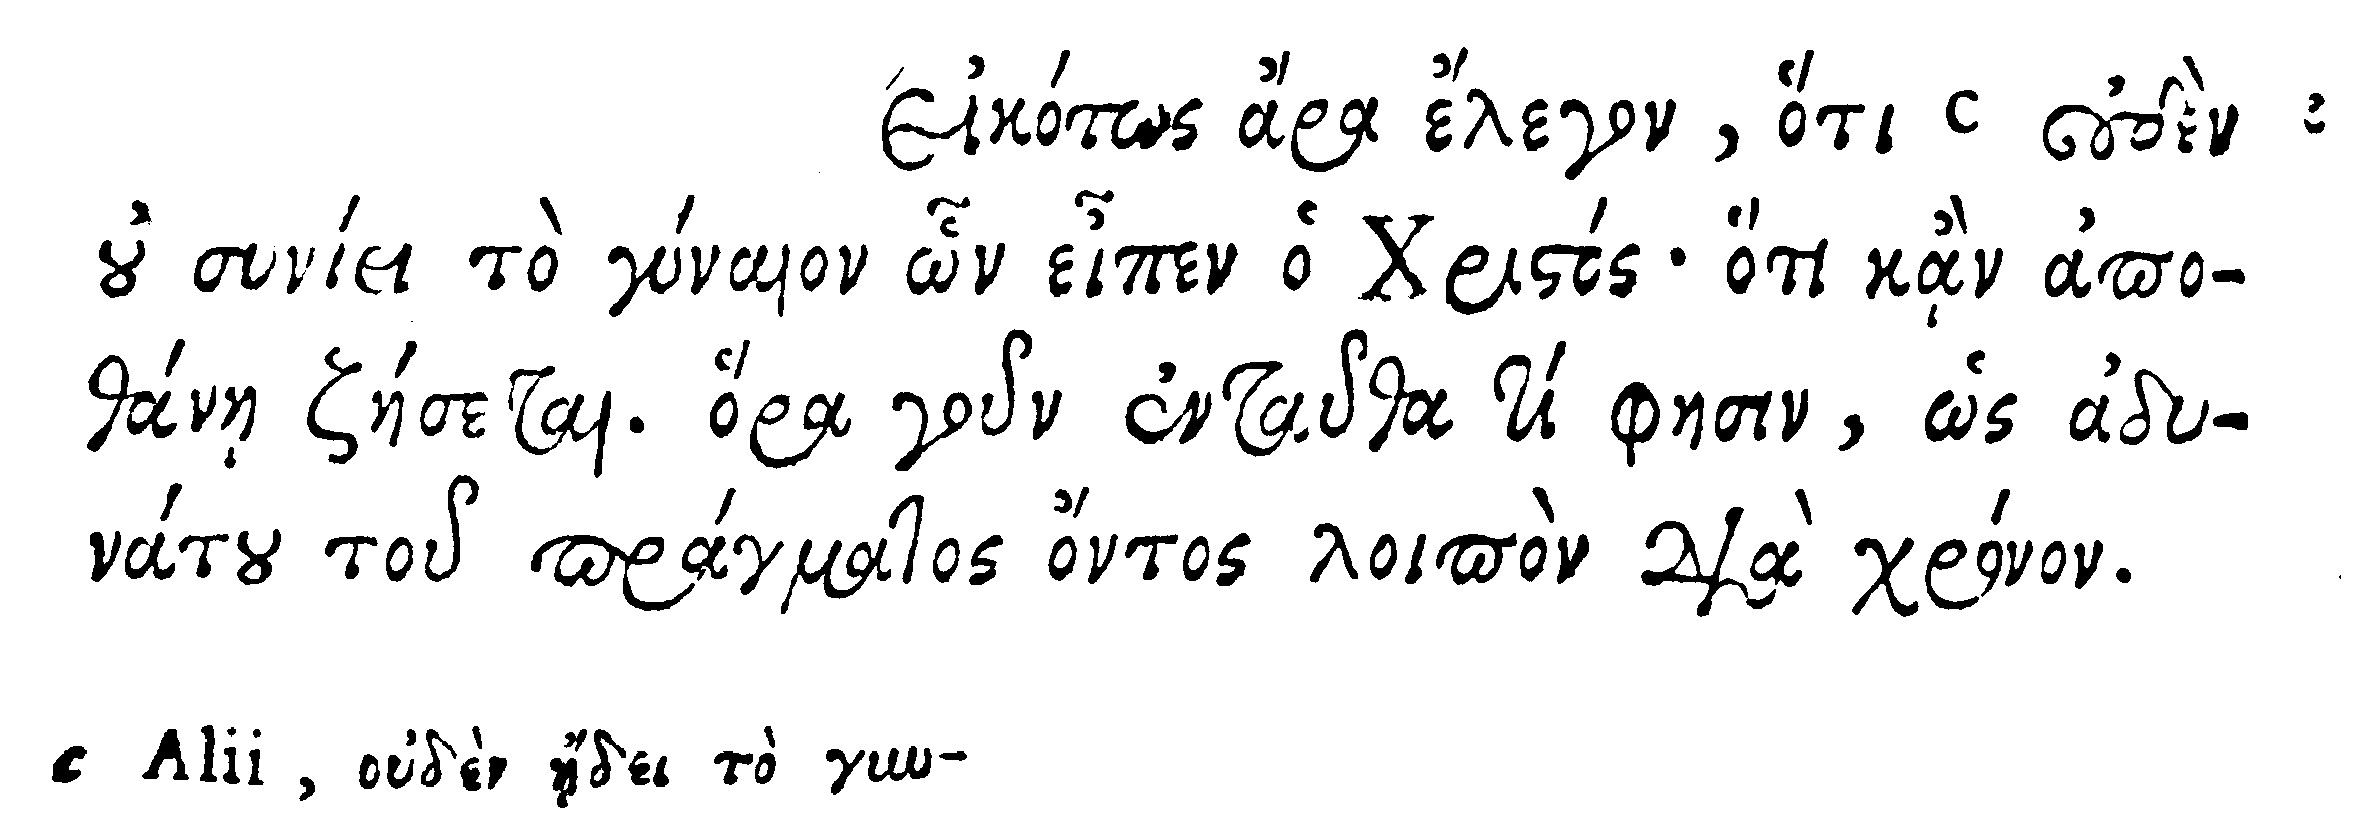 Εἰκότως ἄρα ἔλεγον, ὅτι c οὐδὲν
οὐ συνίει τὸ γύναιον ὧν εἶπεν ὁ Χριστός· ὅτι κᾂν ἀπο-
θάνῃ ζήσεται. ὅρα γοῦν ἐνταῦθα τί φησιν, ὡς ἀδυ-
νάτου τοῦ πράγματος ὄντος λοιπὸν διὰ χρόνον.
c Alii, οὐδὲν ᾔδει τὸ γυν-